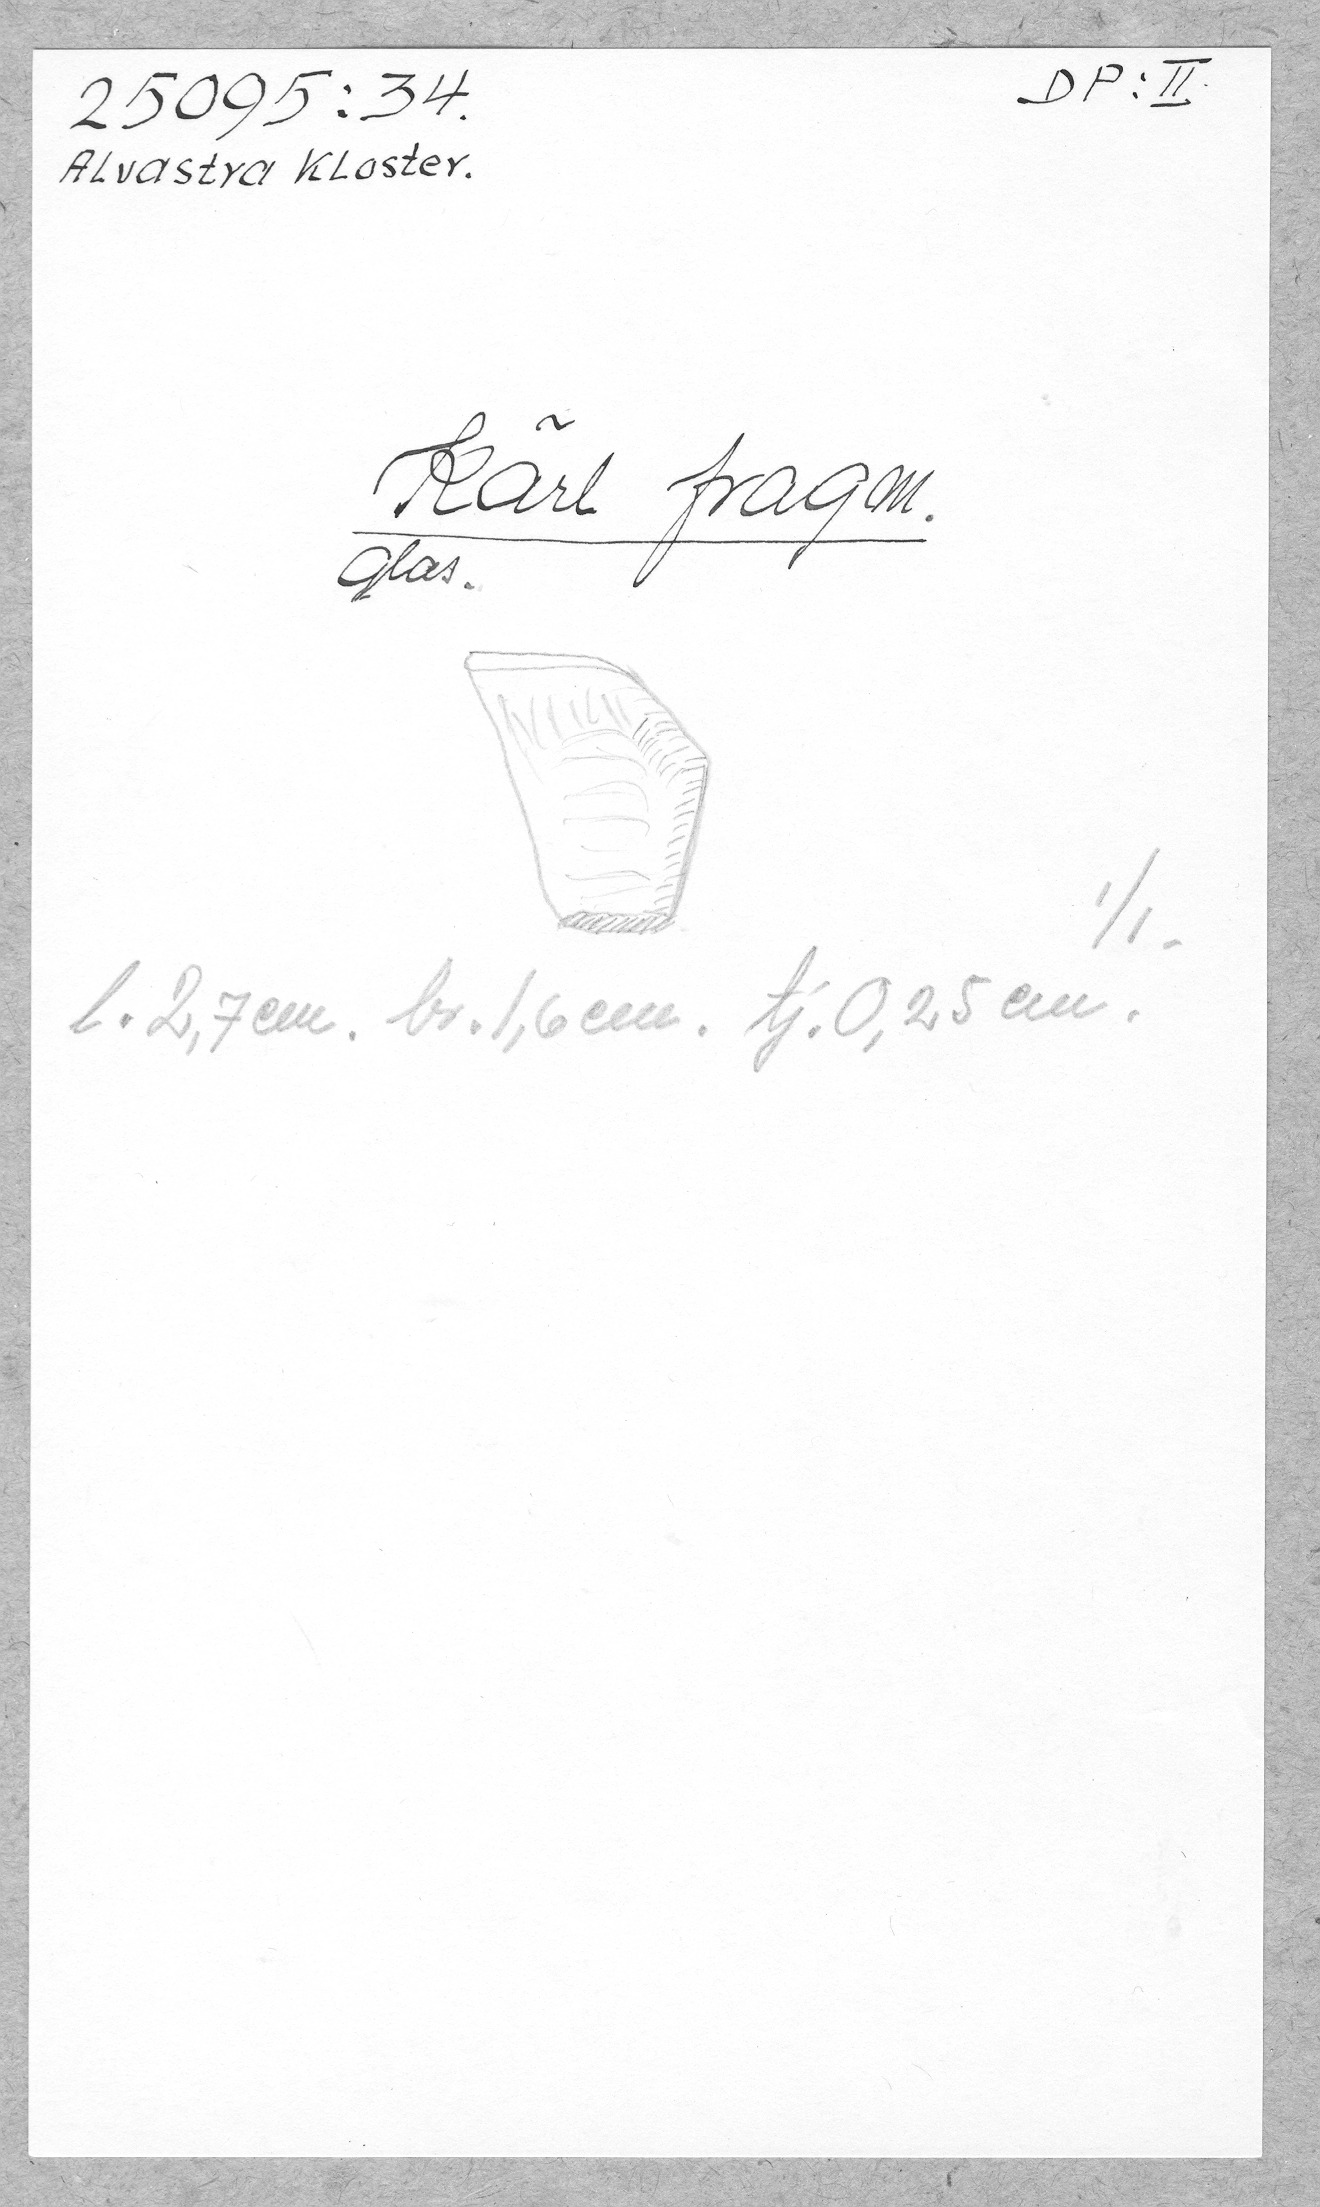 25095:34.
DP:II.
Alvastra Kloster.
Kärl fragm.
glas.
1/1.
l. 2,7 cm. br. 1,6 cm. tj. 0,25 cm.